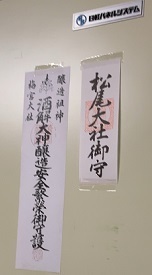 日軽パネルシステム
松尾大社御守
醸造祖神
酒解大神醸造安全繁栄御守護
梅宮大社